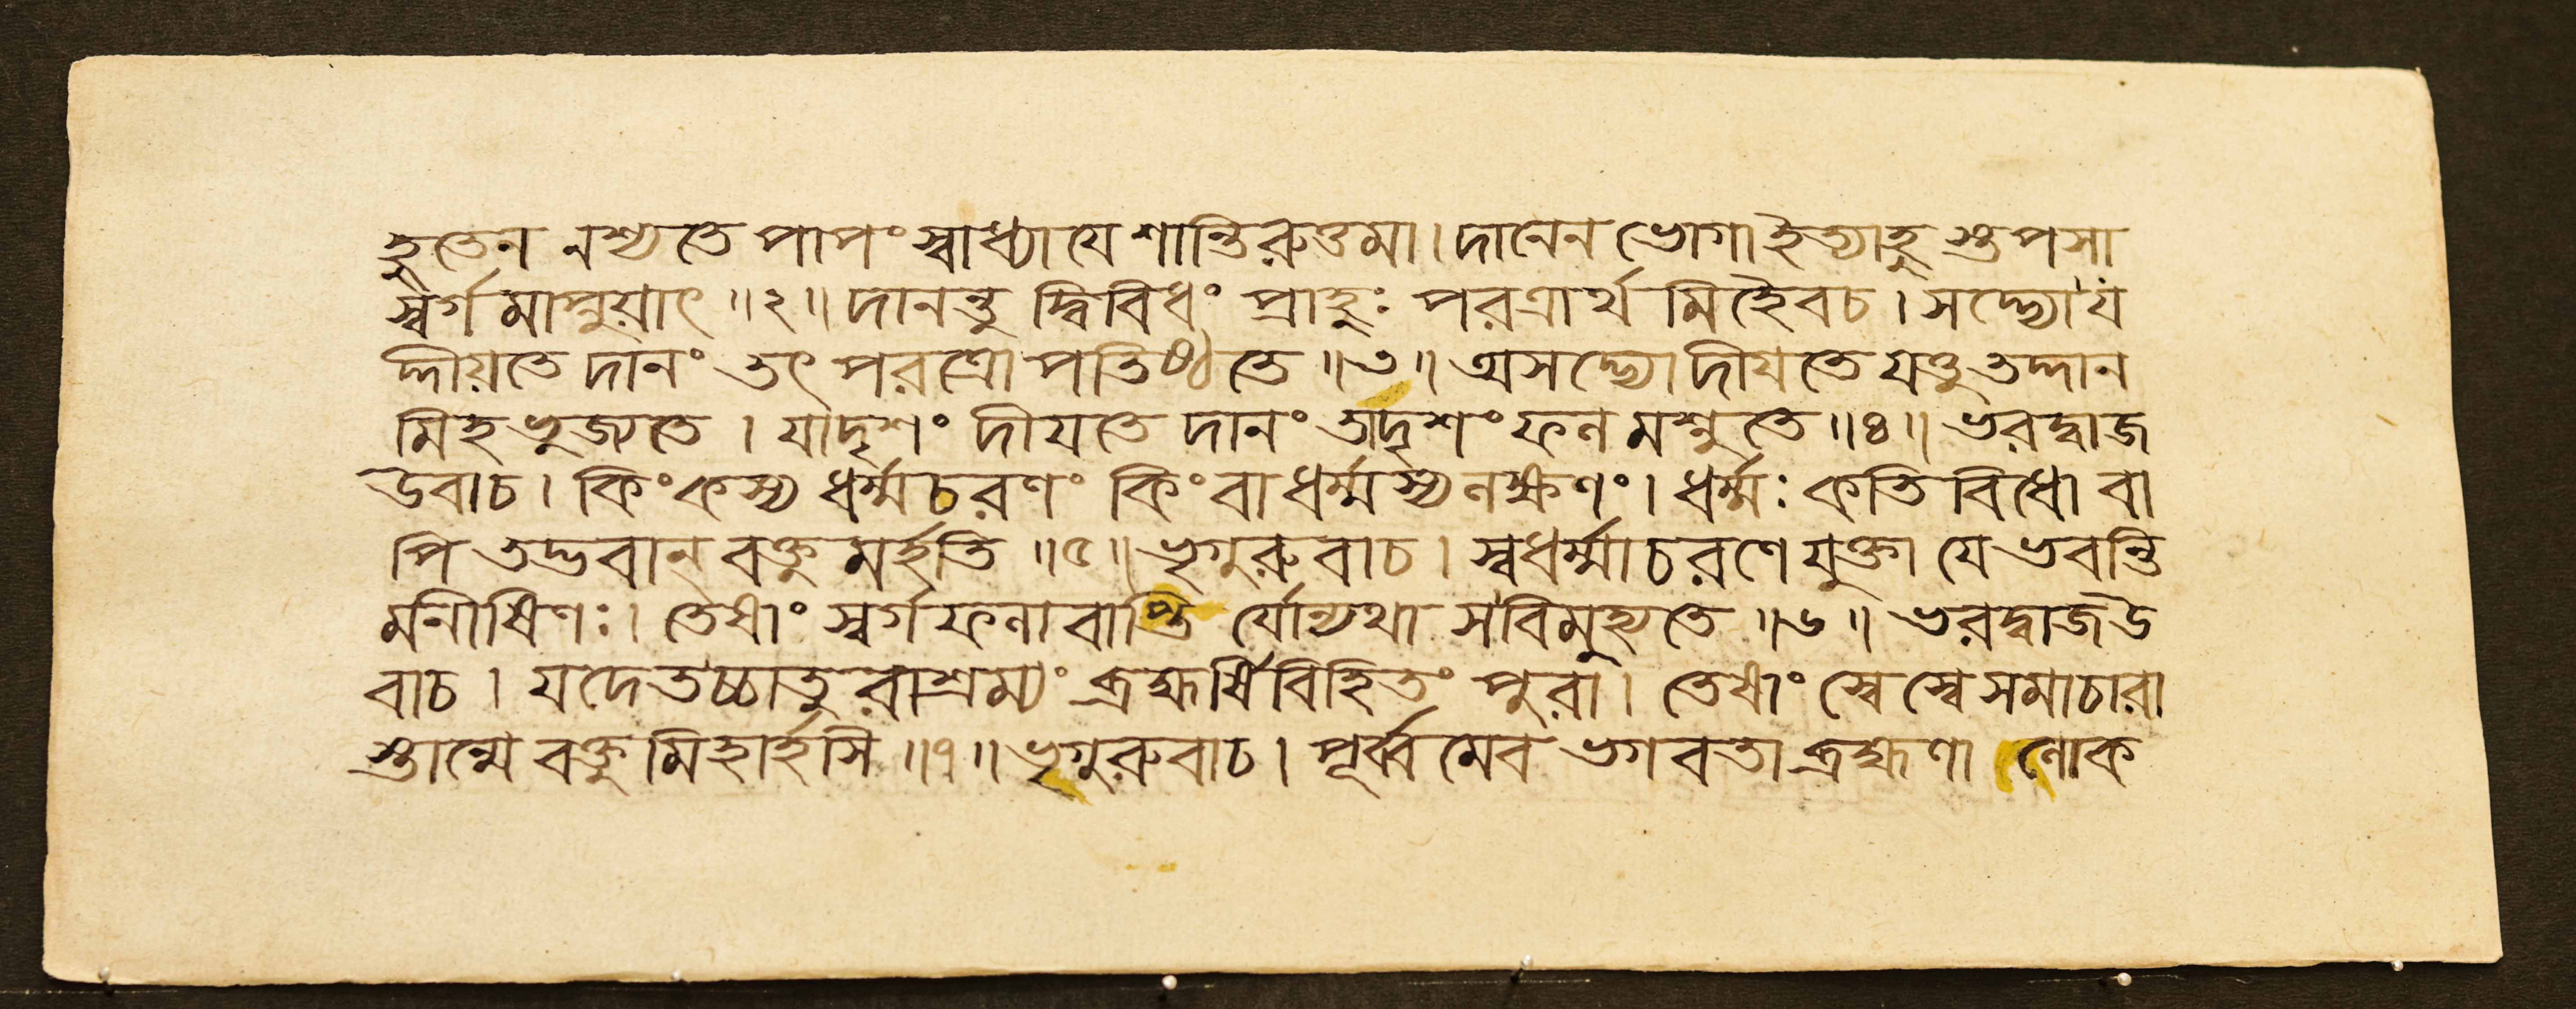 হুতেন নশ্যতে পাপং স্বাধ্যাযে শান্তিরুত্তমা। দানেন ভোগা ইত্যাহু স্তপসা
স্বর্গ মাপ্নুয়াৎ ॥২॥ দানন্তু দ্বিবিধং প্রাহুঃ পরত্রার্থ মিহৈবচ। সদ্ভ্যো যং
দ্দীয়তে দানং তৎ পরত্রোপতিষ্ঠতে ॥৩॥ অসদ্ভ্যো দীযতে যত্তু তদ্দান
মিহ ভুজ্যতে। যাদৃশং দীযতে দানং তাদৃশং ফল মশ্নুতে ॥৪॥ ভরদ্বাজ
উবাচ। কিং কস্য ধর্ম্মচরণং কিংবা ধর্ম্মস্য লক্ষণং। ধর্ম্মঃ কতি বিধো বা
পি তদ্ভবান্ বক্তু মর্হতি ॥৫॥ ভৃগুরুবাচ। স্বধর্ম্মাচরণে যুক্তা যে ভবন্তি
মনীষিণঃ। তেষাং স্বর্গ ফলাবাপ্তি র্যোন্যথা স বিমুহ্যতে ॥৬॥ ভরদ্বাজ উ
বাচ। যদেতচ্চাতুরাশ্রম্যং ব্রহ্মর্ষিবিহিতং পুরা। তেষাং স্বে স্বে সমাচারা
স্তান্মে বক্তু মিহার্হসি ॥৭॥ ভৃগুরুবাচ। পূর্ব্ব মেব ভগবতা ব্রহ্মণা লোক